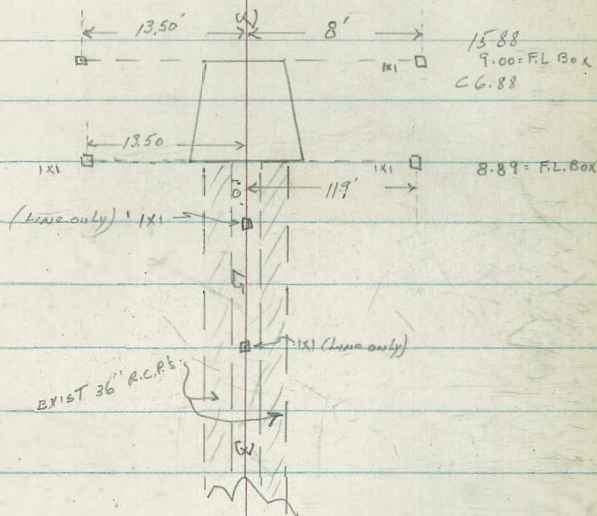 13.50' 8'
1588
1x1 9.00 = F.L Box
C 6.88
13.50
1x1 1x1 8.89 = F.L. Box
11.9'
(Line only) 1x1
1x1 (Line only)
EXIST 36" R.C.P.'s